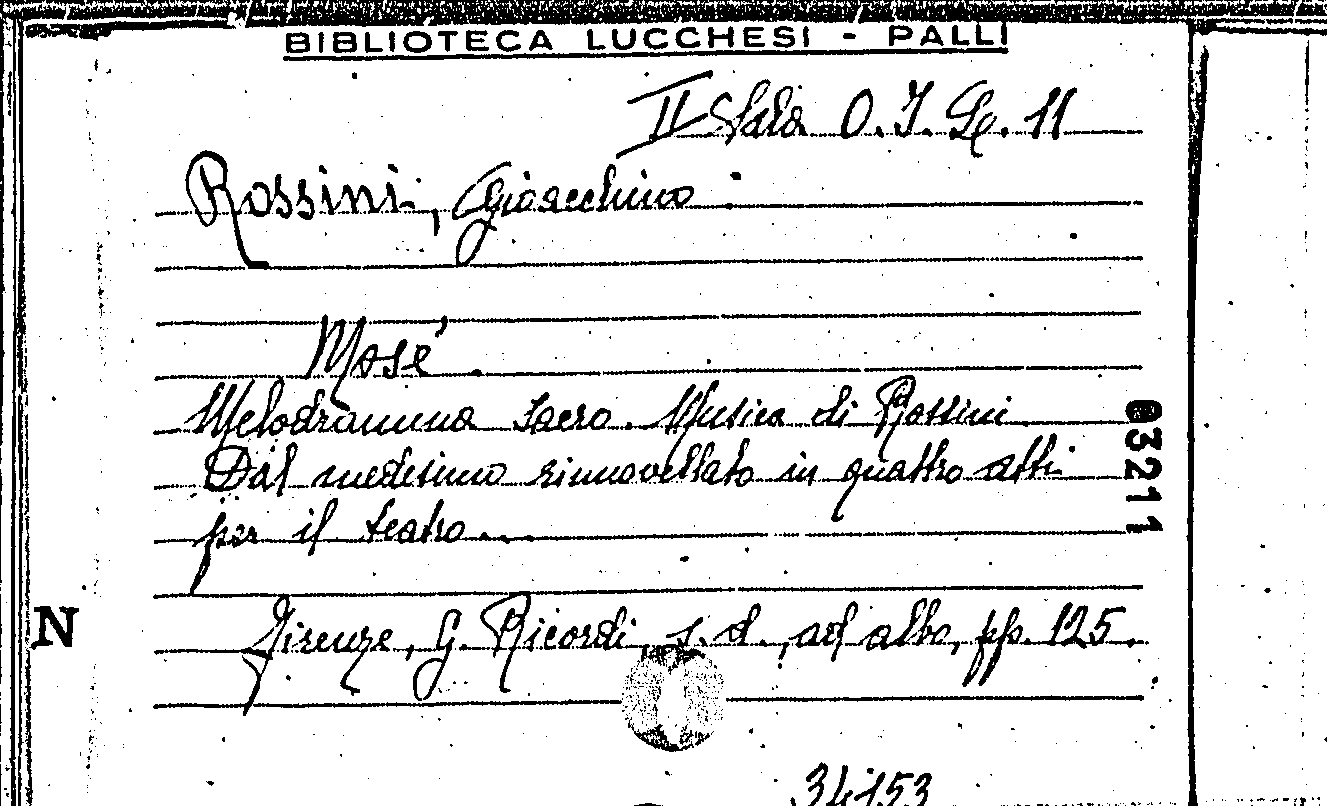 BIBLIOTECA LUCCHESI - PALLI
II Sala O. I. Le. 11
Rossini, Gioacchino :
Mosé .
Melodramma sacro. Musica di Rossini
Dal medesimo rinnovellato in quattro atti
per il teatro....
03211
N
Firenze, G. Ricordi, s. d., ad albo, pp. 125.
34153